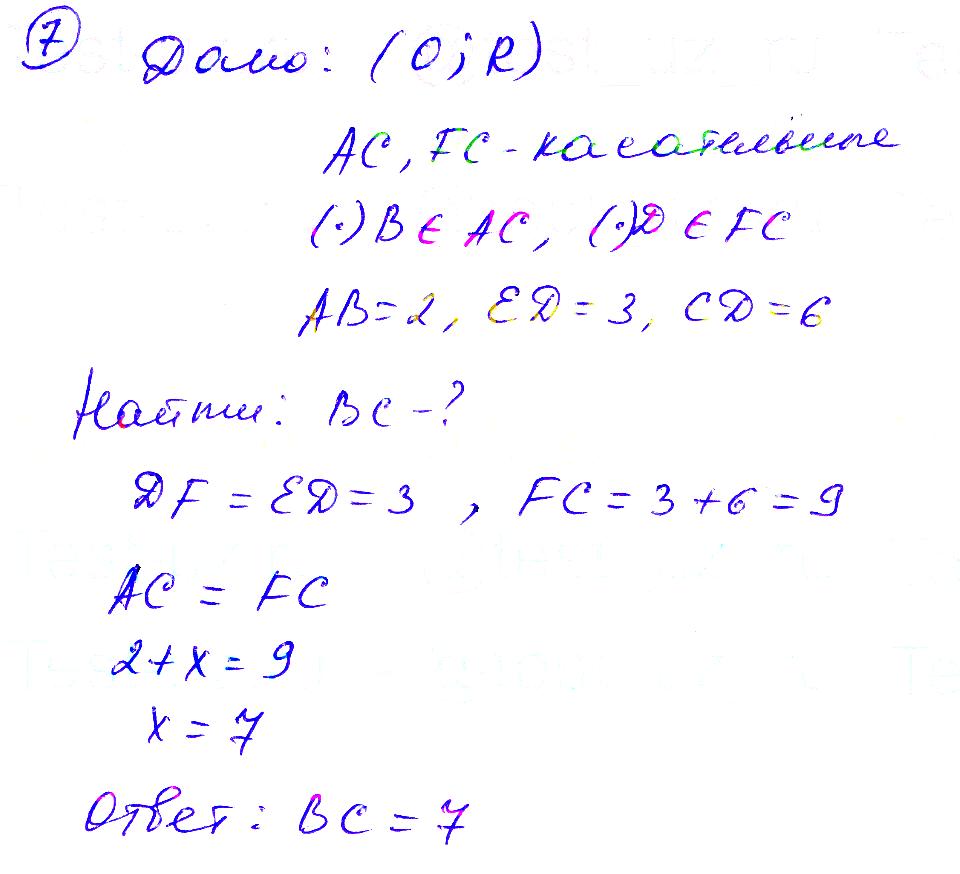 7 Дано: (O; R)
AC, FC - касательные
(·) B ∈ AC, (·) D ∈ FC
AB = 2, ED = 3, CD = 6
Найти: BC - ?
DF = ED = 3, FC = 3 + 6 = 9
AC = FC
2 + x = 9
x = 7
Ответ: BC = 7